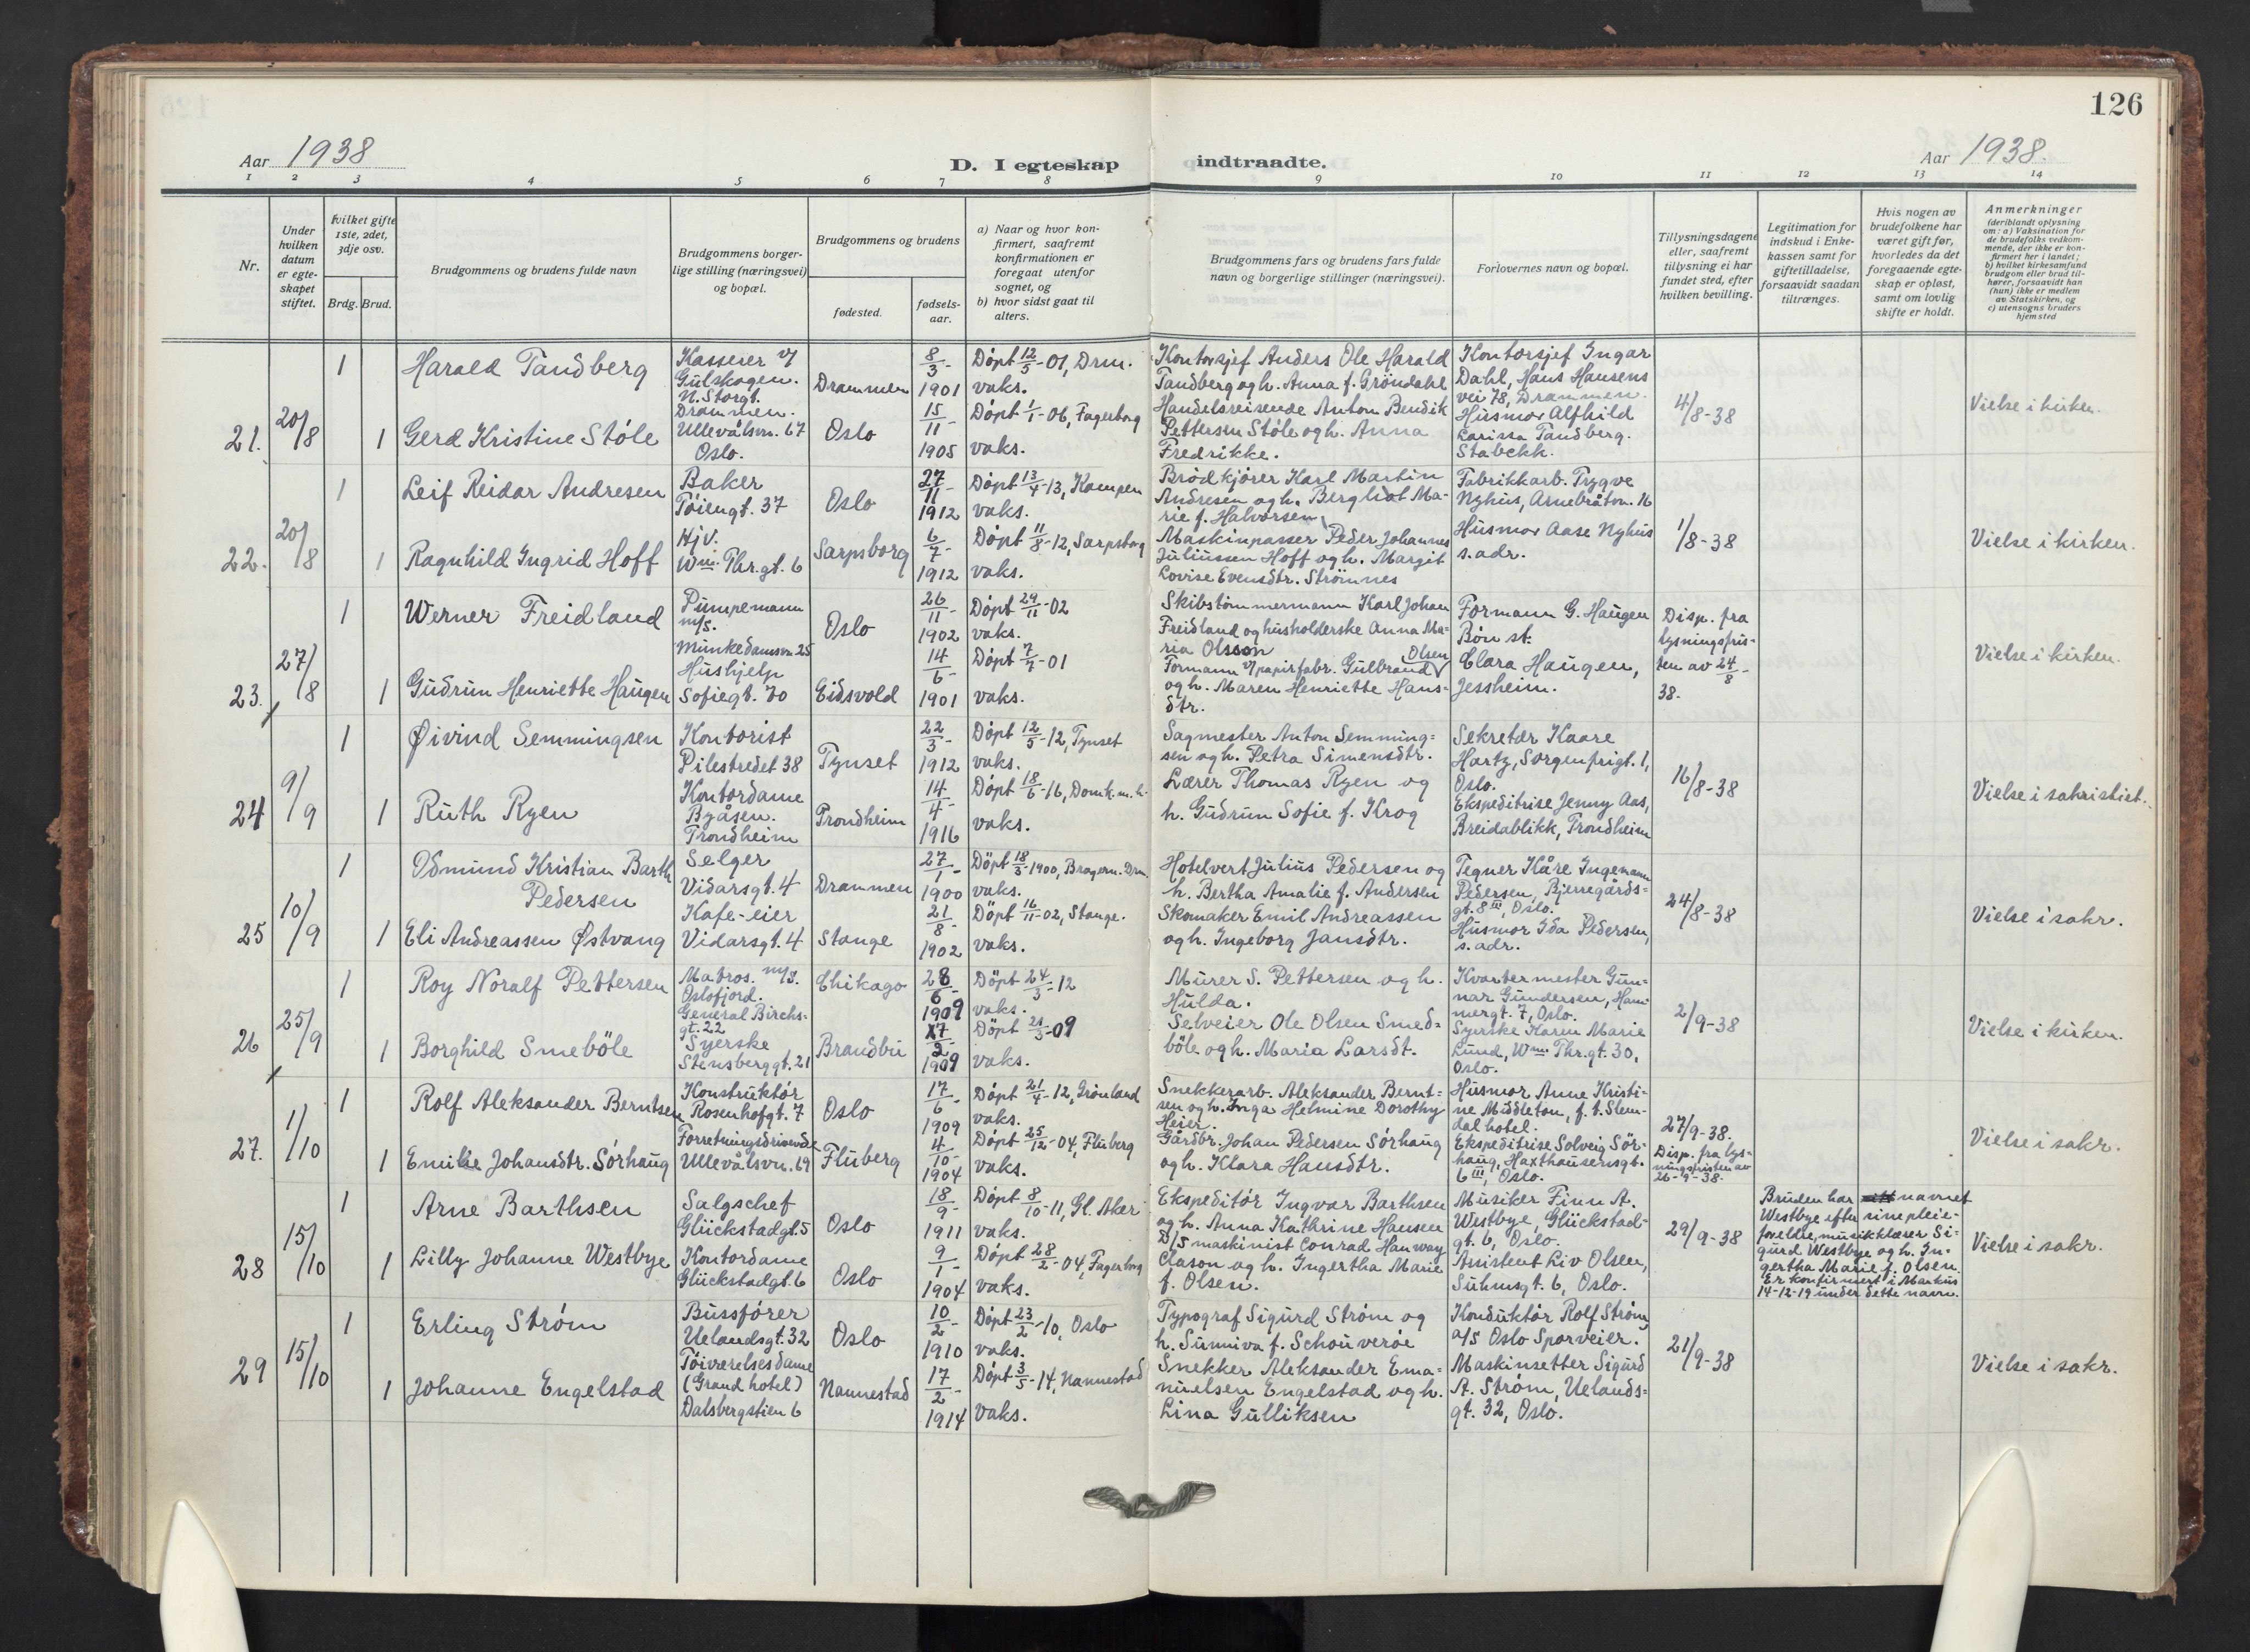 126
Aar 1938
D. I egteskap indtraadte.
Aar 1938.
1 2 3 4 5 6 7 8 9 10 11 12 13 14
Nr.
Under hvilken datum er egteskapet stiftet.
hvilket gifte 1ste, 2det, 3dje osv.
Brdg. Brud.
Brudgommens og brudens fulde navn
Brudgommens borgerlige stilling (næringsvei) og bopæl.
Brudgommens og brudens
fødested.
fødselsaar.
a) Naar og hvor konfirmert, saafremt konfirmationen er foregaat utenfor sognet, og
b) hvor sidst gaat til alters.
Brudgommens fars og brudens fars fulde navn og borgerlige stillinger (næringsvei).
Forlovernes navn og bopæl.
Tillysningsdagene eller, saafremt tillysning ei har fundet sted, efter hvilken bevilling.
Legitimation for indskud i Enkekassen samt for giftetilladelse, forsaavidt saadan tiltrænges.
Hvis nogen av brudefolkene har været gift før, hvorledes da det foregaaende egteskap er opløst, samt om lovlig skifte er holdt.
Anmerkninger
(deriblandt oplysning om: a) Vaksination for de brudefolks vedkommende, der ikke er konfirmert her i landet; b) hvilket kirkesamfund brudgom eller brud tilhører, forsaavidt han (hun) ikke er medlem av Statskirken, og c) utensogns bruders hjemsted
21. 20/8
1 Harald Tandberg
Kasserer v/ Gulskogen. N. Storgt. Drammen.
Drammen
8/3- 1901
Döpt 12/5-01, Drm. vaks.
Kontorsjef Anders Ole Harald Tandberg og h. Anna f. Gröndahl
Kontorsjef Ingar Dahl, Hans Hansens vei 78, Drammen.
1 Gerd Kristine Støle
Ullevålsvn. 67 Oslo.
Oslo
15/11- 1905
Döpt 1/1-06, Fagerborg vaks.
Handelsreisende Anton Bendik Pettersen Støle og h. Anna Fredrikke.
Husmor Alfhild Larissa Tandberg. Stabekk.
4/8-38
Vielse i kirken.
22. 20/8
1 Leif Reidar Andresen
Baker Töiengt. 37
Oslo
27/11- 1912
Döpt 13/4-13, Kampen vaks.
Brödkjörer Karl Martin Andresen og h. Bergliot Marie f. Halvorsen
Fabrikkarb. Trygve Nyhus, Arnebråtvn. 16
1 Ragnhild Ingrid Hoff
Hjv. Wm. Thr.gt. 6
Sarpsborg
6/7- 1912
Döpt 11/8-12, Sarpsborg vaks.
Maskinpasser Peder Johannes Juliussen Hoff og h. Margit Lovise Evensdtr. Strömnes
Husmor Aase Nyhus s. adr.
1/8-38
Vielse i kirken.
23. 27/8
1 Werner Freidland
Pumpemann m/s. Munkedamsvn 25
Oslo
26/11- 1902
Döpt 29/11-02 vaks.
Skibstömmermann Karl Johan Freidland og husholderske Anna Maria Olsson
Formann G. Haugen Bön st.
1 Gudrun Henriette Haugen
Hushjelp Sofiegt. 70
Eidsvold
14/6- 1901
Döpt 7/7-01 vaks.
Formann v/ papirfabr. Gulbrand Olsen og h. Maren Henriette Hansdtr.
Clara Haugen, Jessheim.
Disp. fra lysningsfristen av 24/8-38.
Vielse i kirken.
24 9/9
1 Øivind Semmingsen
Kontorist Pilestredet 38
Tynset
22/3- 1912
Döpt 12/5-12, Tynset vaks.
Sagmester Anton Semmingsen og h. Petra Simensdtr.
Sekretær Kaare Hartz, Sorgenfrigt. 1, Oslo.
1 Ruth Ryen
Kontordame Byåsen. Trondheim
Trondheim
14/4- 1916
Döpt 18/6-16, Domk. m.h. vaks.
Lærer Thomas Ryen og h. Gudrun Sofie f. Krog
Ekspeditrise Jenny Aas, Breidablikk, Trondheim
16/8-38
Vielse i sakristiet.
25 10/9
1 Odmund Kristian Barth Pedersen
Selger Vidarsgt. 4
Drammen
27/1- 1900
Döpt 18/3-1900, Bragern. Drm. vaks.
Hotelvert Julius Pedersen og h. Bertha Amalie f. Andersen
Tegner Kåre Ingemann Pedersen, Bjerregårdsgt. 8 III, Oslo.
1 Eli Andreassen Østvang
Kafe-eier Vidarsgt. 4
Stange
21/8- 1902
Döpt 16/11-02, Stange. vaks.
Skomaker Emil Andreassen og h. Ingeborg Jansdtr.
Husmor Ida Pedersen, s. adr.
24/8-38
Vielse i sakr.
26 25/9
1 Roy Noralf Pettersen
Matros. m/s. Oslofjord. General Birchsgt. 22
Chikago
28/6- 1909
Döpt 24/3-12 vaks.
Murer S. Pettersen og h. Hulda.
Kvartermester Gunnar Gundersen, Hammergt. 7, Oslo.
1 Borghild Smeböle
Syerske Stensberggt. 21
Brandbu
17/2- 1909
Döpt 21/3-09 vaks.
Selveier Ole Olsen Smedböle og h. Maria Larsdt.
Syerske Karen Marie Lund, Wm. Thr.gt. 30, Oslo.
2/9-38
Vielse i kirken.
27. 1/10
1 Rolf Aleksander Berntsen
Konstruktör Rosenhofgt. 7
Oslo
17/6- 1909
Döpt 21/4-12, Grönland vaks.
Snekkerarb. Aleksander Berntsen og h. Inga Helmine Dorothy Heier.
Husmor Anne Kristine Middleton, f. t. Slemdal hotel.
1 Emilie Johansdtr. Sörhaug
Forretningsdrivende Ullevålsvn. 69
Fluberg
4/10- 1904
Döpt 25/12-04, Fluberg vaks.
Gårdbr. Johan Pedersen Sörhaug og h. Klara Hansdtr.
Ekspeditrise Solveig Sörhaug, Haxthausensgt. 6 III, Oslo.
27/9-38. Disp. fra lysningsfristen av 26-9-38.
Vielse i sakr.
28 15/10
1 Arne Barthsen
Salgschef Glückstadgt. 5
Oslo
18/9- 1911
Döpt 8/10-11, Gl. Aker vaks.
Ekspeditör Ingvar Barthsen og h. Anna Kathrine Hansen
Musiker Finn A. Westbye, Glückstadgt. 6, Oslo.
1 Lilly Johanne Westbye
Kontordame Glückstadgt. 6
Oslo
9/1- 1904
Döpt 28/2-04, Fagerborg vaks.
D/S maskinist Conrad Hanway Clason og h. Ingertha Marie f. Olsen.
Assistent Liv Olsen, Suhmsgt. 6, Oslo.
29/9-38
Bruden har navnet Westbye efter sine pleieforeldre, musikklærer Sigurd Westbye og h. Ingertha Marie f. Olsen. Er konfirmert i Markus 14-12-19 under dette navn.
Vielse i sakr.
29 15/10
1 Erling Ström
Bussförer Uelandsgt. 32
Oslo
10/2- 1910
Döpt 23/2-10, Oslo vaks.
Typograf Sigurd Ström og h. Sunniva f. Schouverøe
Konduktör Rolf Ström, a/s Oslo Sporveier.
1 Johanne Engelstad
Töiværelsesdame (Grand hotel) Dalsbergstien 6
Nannestad
17/2- 1914
Döpt 3/5-14, Nannestad vaks.
Snekker Aleksander Emanuelsen Engelstad og h. Lina Gulliksen
Maskinsetter Sigurd A. Ström, Uelandsgt. 32, Oslo.
21/9-38
Vielse i sakr.